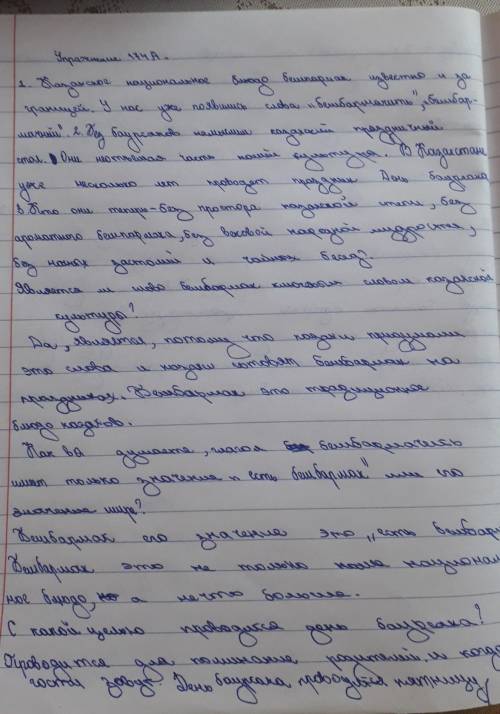 Упражнение 174А.
1. Казахское национальное блюдо бешпармак известно и за
границей. У нас уже появились слова „бешбармачить", „бешбар-
мачный". 2. Без баурсаков немыслим казахский праздничный
стол. Они неотъемная часть нашей культуры. В Казахстане
уже несколько лет проводят праздник День баурсака
3. Кто они теперь-без простора казахской степи, без
ароматного бешпармака, без вековой народной мудрости,
без наших застолий и чайных бесед?
Является ли слово бешбармак ключевым словом казахской
культуры?
Да, является, потому что казахи придумали
это слова и казахи готовят бешбармак на
праздниках. Бешбармак это традиционное
блюдо казахов.
Как вы думаете, глагол бешбармачить
имет только значение „есть бешбармак" или его
значение шире?
Бешбармак его значение это „есть бешбар
Бешбармак это не только наше национал
ное блюдо, а нечто больше.
С какой целью проводится день баурсака?
Проводится для поминание родителей и когда
гости зовут. День баурсака проводится пятницу,